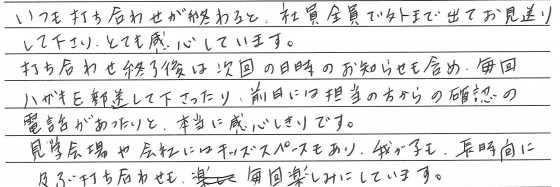 いつも打ち合わせが終わると、社員全員で外まで出てお見送り
して下さり、とても感心しています。
打ち合わせ終了後は次回の日時のお知らせも含め、毎回
ハガキを郵送して下さったり、前日には担当の方からの確認の
電話があったりと、本当に感心しきりです。
見学会場や会社にはキッズスペースもあり、我が子も、長時間に
及ぶ打ち合わせも、毎回楽しみにしています。